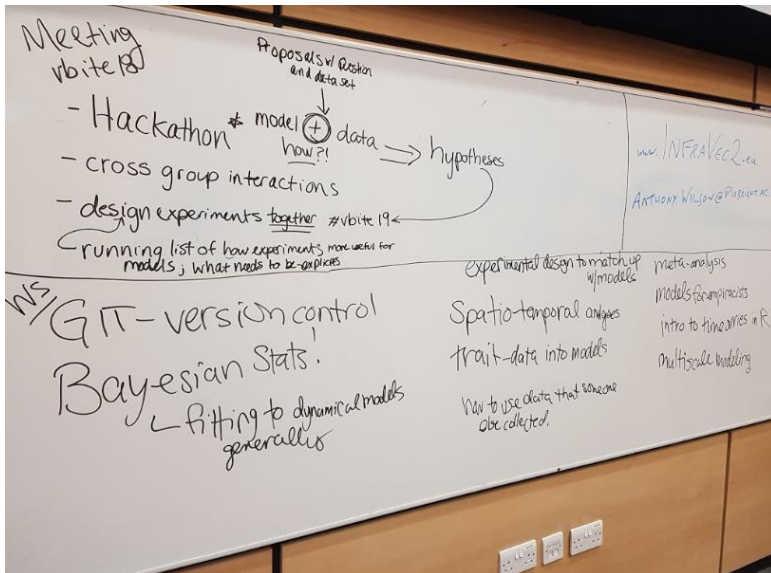 Meeting
vbite18
Proposals w/ question
and data set
- Hackathon * model + data ⇒ hypotheses
how?!
- cross group interactions
- design experiments together #vbite19
running list of how experiments more useful for
models; what needs to be explicit
www.INFRAVEC2.eu
ANTHONY.WILSON@PIRBRIGHT.AC
WS/
GIT-version control
Bayesian Stats!
fitting to dynamical models
generally
experimental design to match up
w/models
Spatio-temporal analyses
trait-data into models
how to use data that someone
else collected.
meta-analysis
models for empiricists
intro to time series in R
multiscale modeling